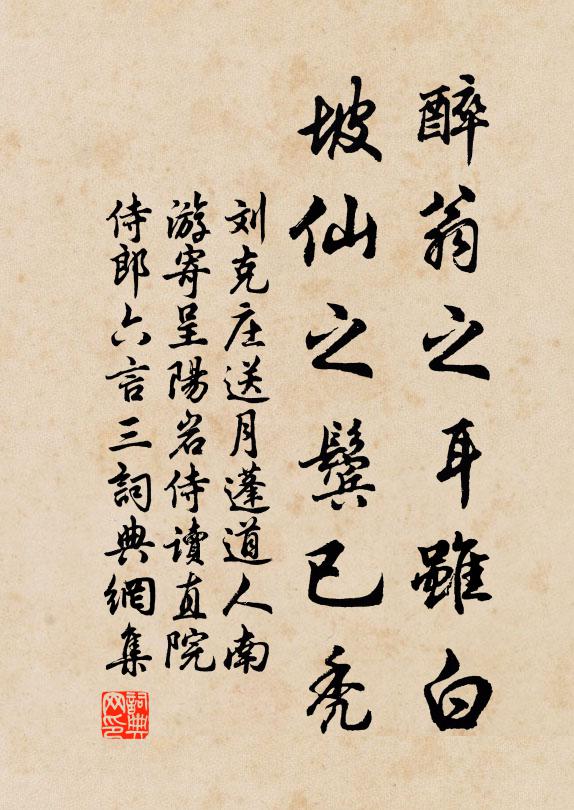 醉翁之耳雖白
坡仙之鬢已秃
刘克庄送月蓬道人南
游寄呈陽岩侍讀直院
侍郎六言三詞典網集
詞典网印